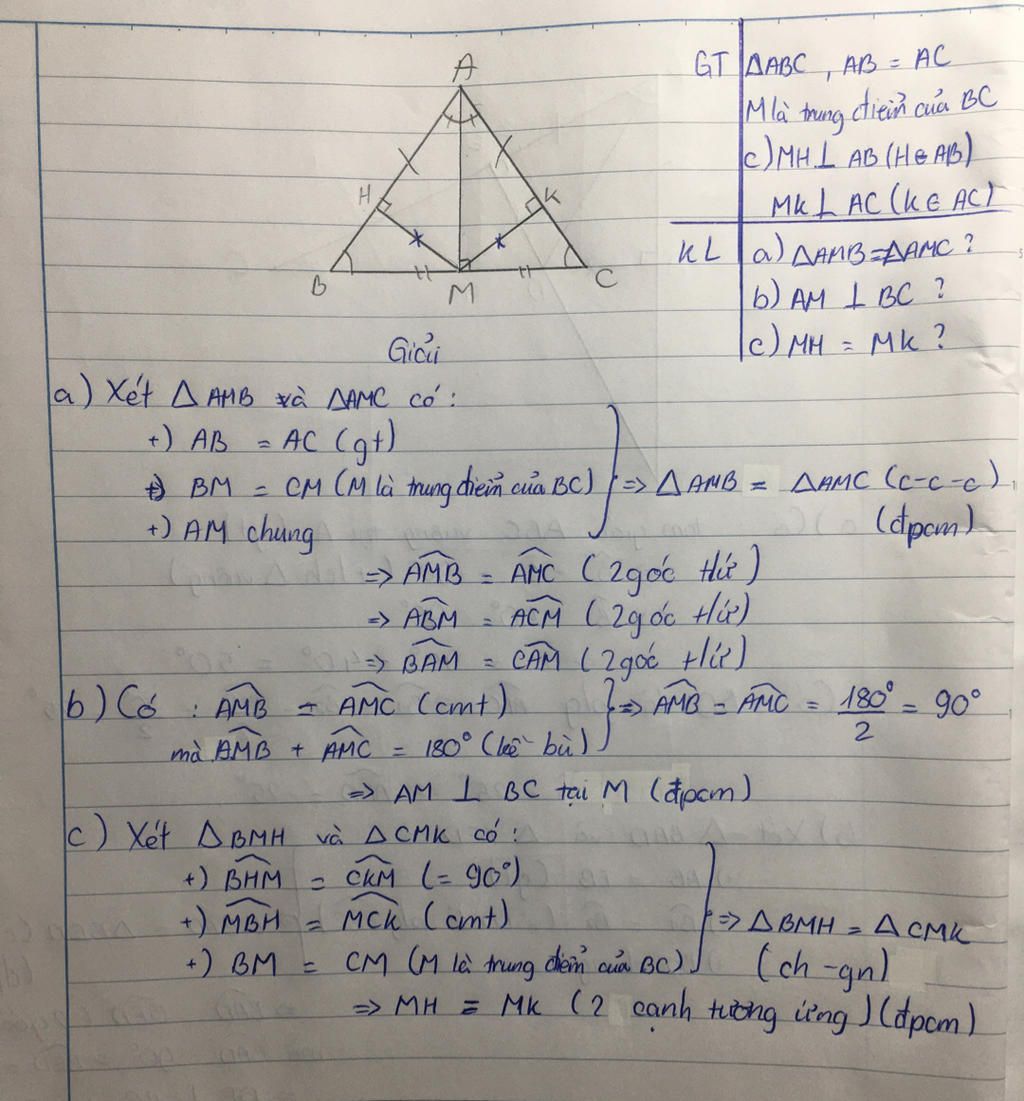 A
H
K
B
M
C
GT
ΔABC, AB = AC
M là trung điểm của BC
c) MH ⊥ AB (H ∈ AB)
MK ⊥ AC (K ∈ AC)
KL
a) ΔAMB = ΔAMC ?
b) AM ⊥ BC ?
c) MH = MK ?
Giải
a) Xét ΔAMB và ΔAMC có:
+) AB = AC (gt)
+) BM = CM (M là trung điểm của BC)
+) AM chung
=> ΔAMB = ΔAMC (c-c-c)
(đpcm)
=> \widehat{AMB} = \widehat{AMC} (2 góc t/ứ)
=> \widehat{ABM} = \widehat{ACM} (2 góc t/ứ)
=> \widehat{BAM} = \widehat{CAM} (2 góc t/ứ)
b) Có : \widehat{AMB} = \widehat{AMC} (cmt)
mà \widehat{AMB} + \widehat{AMC} = 180° (kề bù)
=> \widehat{AMB} = \widehat{AMC} = \frac{180°}{2} = 90°
=> AM ⊥ BC tại M (đpcm)
c) Xét ΔBMH và ΔCMK có:
+) \widehat{BHM} = \widehat{CKM} (= 90°)
+) \widehat{MBH} = \widehat{MCK} (cmt)
+) BM = CM (M là trung điểm của BC)
=> ΔBMH = ΔCMK
(ch - gn)
=> MH = MK (2 cạnh tương ứng) (đpcm)